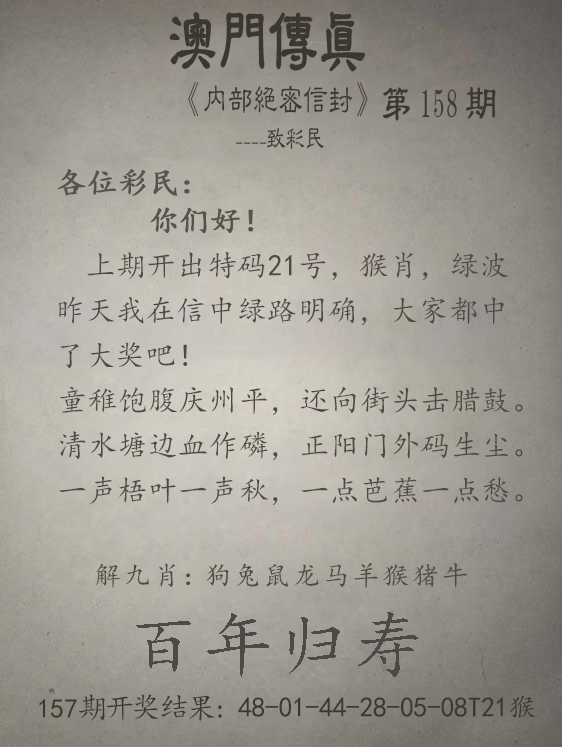 澳門傳眞
《内部絕密信封》第158期
----致彩民
各位彩民：
你们好！
上期开出特码21号，猴肖，绿波
昨天我在信中绿路明确，大家都中
了大奖吧！
童稚饱腹庆州平，还向街头击腊鼓。
清水塘边血作磷，正阳门外码生尘。
一声梧叶一声秋，一点芭蕉一点愁。
解九肖：狗兔鼠龙马羊猴猪牛
百年归寿
157期开奖结果：48-01-44-28-05-08T21猴